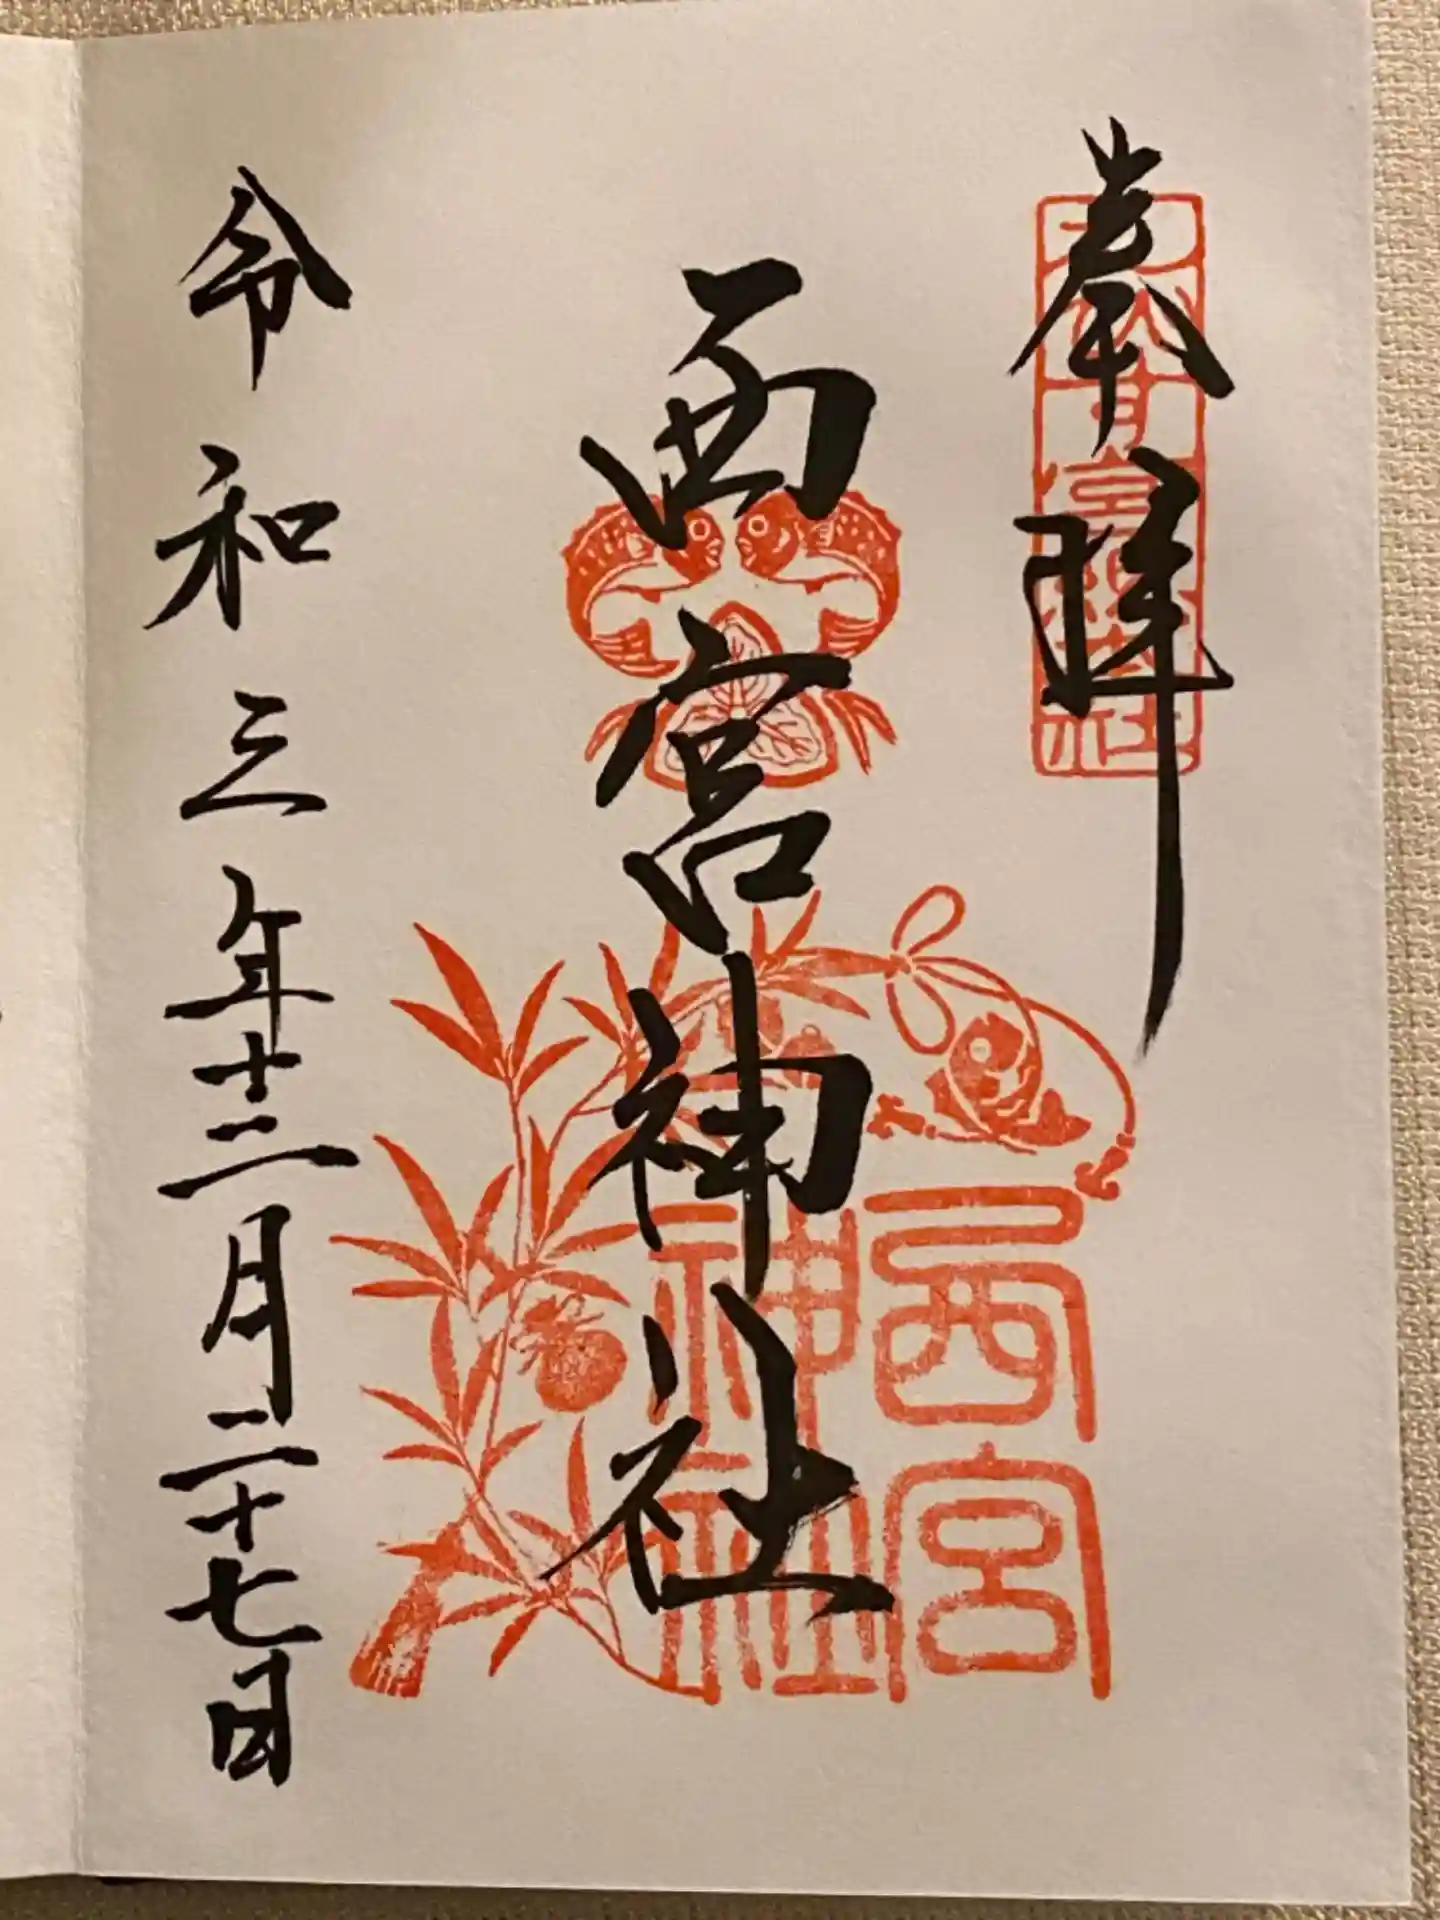 奉拝
西宮神社
西宮神社
令和三年十二月二十七日